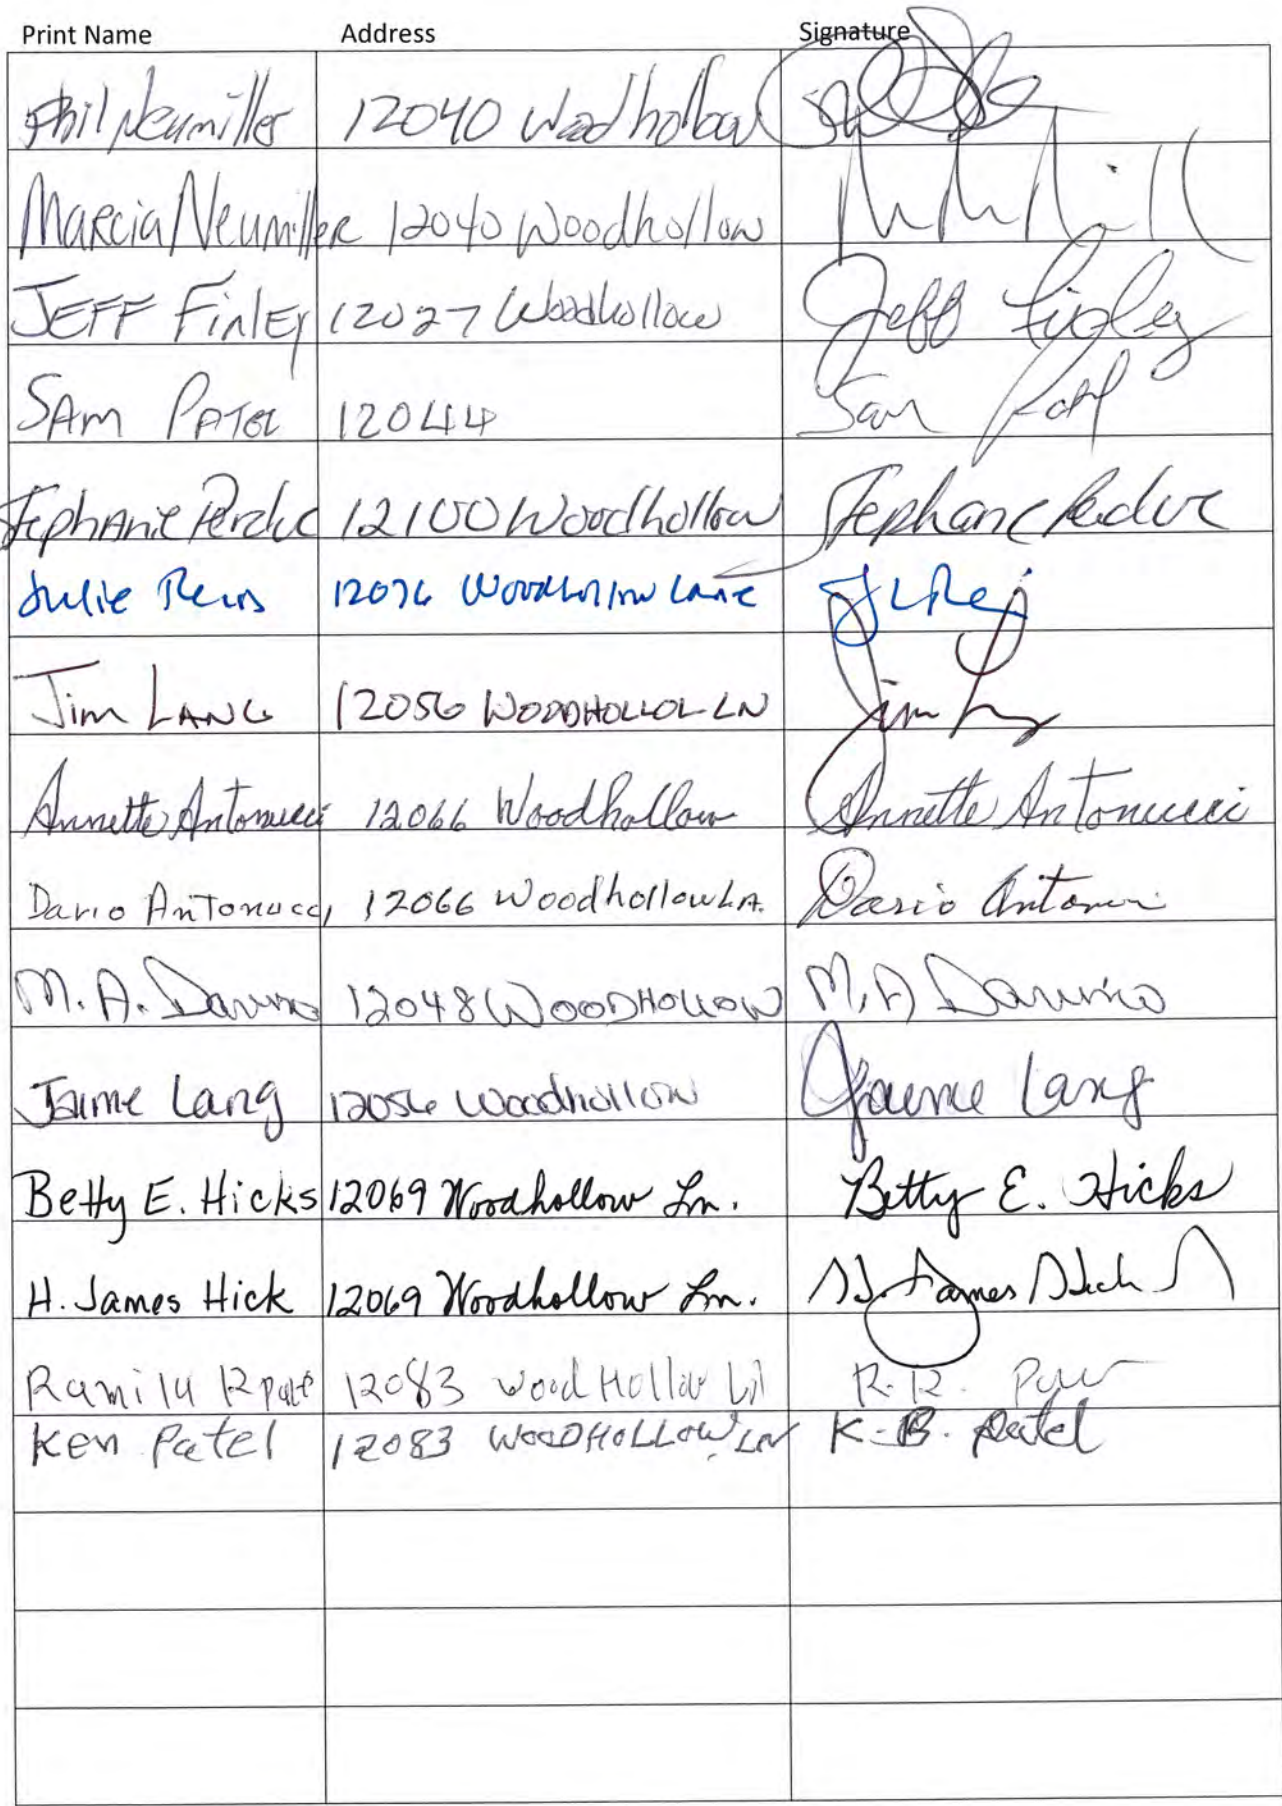 Print Name Address Signature
Phil Neumiller 12040 Woodhollow
Marcia Neumiller 12040 Woodhollow
JEFF FinlEy 12027 Woodhollow Jeff Finley
SAm PATEL 12044 Sam Patel
StephAnie Perdue 12100 Woodhollow Stephanie Perdue
Julie 12076 Woodhollow Lane
Jim LANG 12056 WOODHOLLOW LN Jim
Annette Antonucci 12066 Woodhollow Annette Antonucci
Dario Antonucci 12066 Woodhollow LA. Dario
M. A. 12048 WOODHOLLOW M. A
Jaime Lang 12056 Woodhollow Jaime Lang
Betty E. Hicks 12069 Woodhollow Ln. Betty E. Hicks
H. James Hick 12069 Woodhollow Ln. H. James Hick
12083 wood Hollow LN R. R.
Ken Patel 12083 WOODHOLLOW LN K. B. Patel